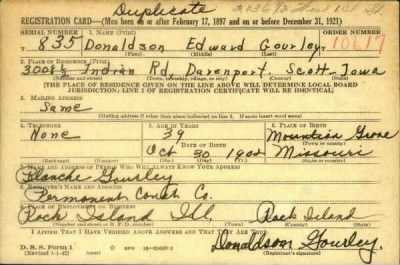 Duplicate
REGISTRATION CARD—(Men born on or after February 17, 1897 and on or before December 31, 1921)
SERIAL NUMBER 1. NAME (Print) ORDER NUMBER
T 835 Donaldson Edward Gourley 10619
2. PLACE OF RESIDENCE (Print)
3008½ Indian Rd, Davenport Scott Iowa
[THE PLACE OF RESIDENCE GIVEN ON THE LINE ABOVE WILL DETERMINE LOCAL BOARD
JURISDICTION; LINE 2 OF REGISTRATION CERTIFICATE WILL BE IDENTICAL]
3. MAILING ADDRESS
Same
[Mailing address if other than place indicated on line 2. If same insert word same]
4. TELEPHONE 5. AGE IN YEARS 6. PLACE OF BIRTH
None 39 Mountain Grove
DATE OF BIRTH (Town or county)
Oct 30 1902 Missouri
7. NAME AND ADDRESS OF PERSON WHO WILL ALWAYS KNOW YOUR ADDRESS
Blanche Gourley
8. EMPLOYER'S NAME AND ADDRESS
Permanent Const Co.
9. PLACE OF EMPLOYMENT OR BUSINESS
Rock Island Ill, Rock Island
(Number and street or R. F. D. number) (Town) (County) (State)
I AFFIRM THAT I HAVE VERIFIED ABOVE ANSWERS AND THAT THEY ARE TRUE.
D. S. S. Form 1 Donaldson Gourley
(Registrant's signature)